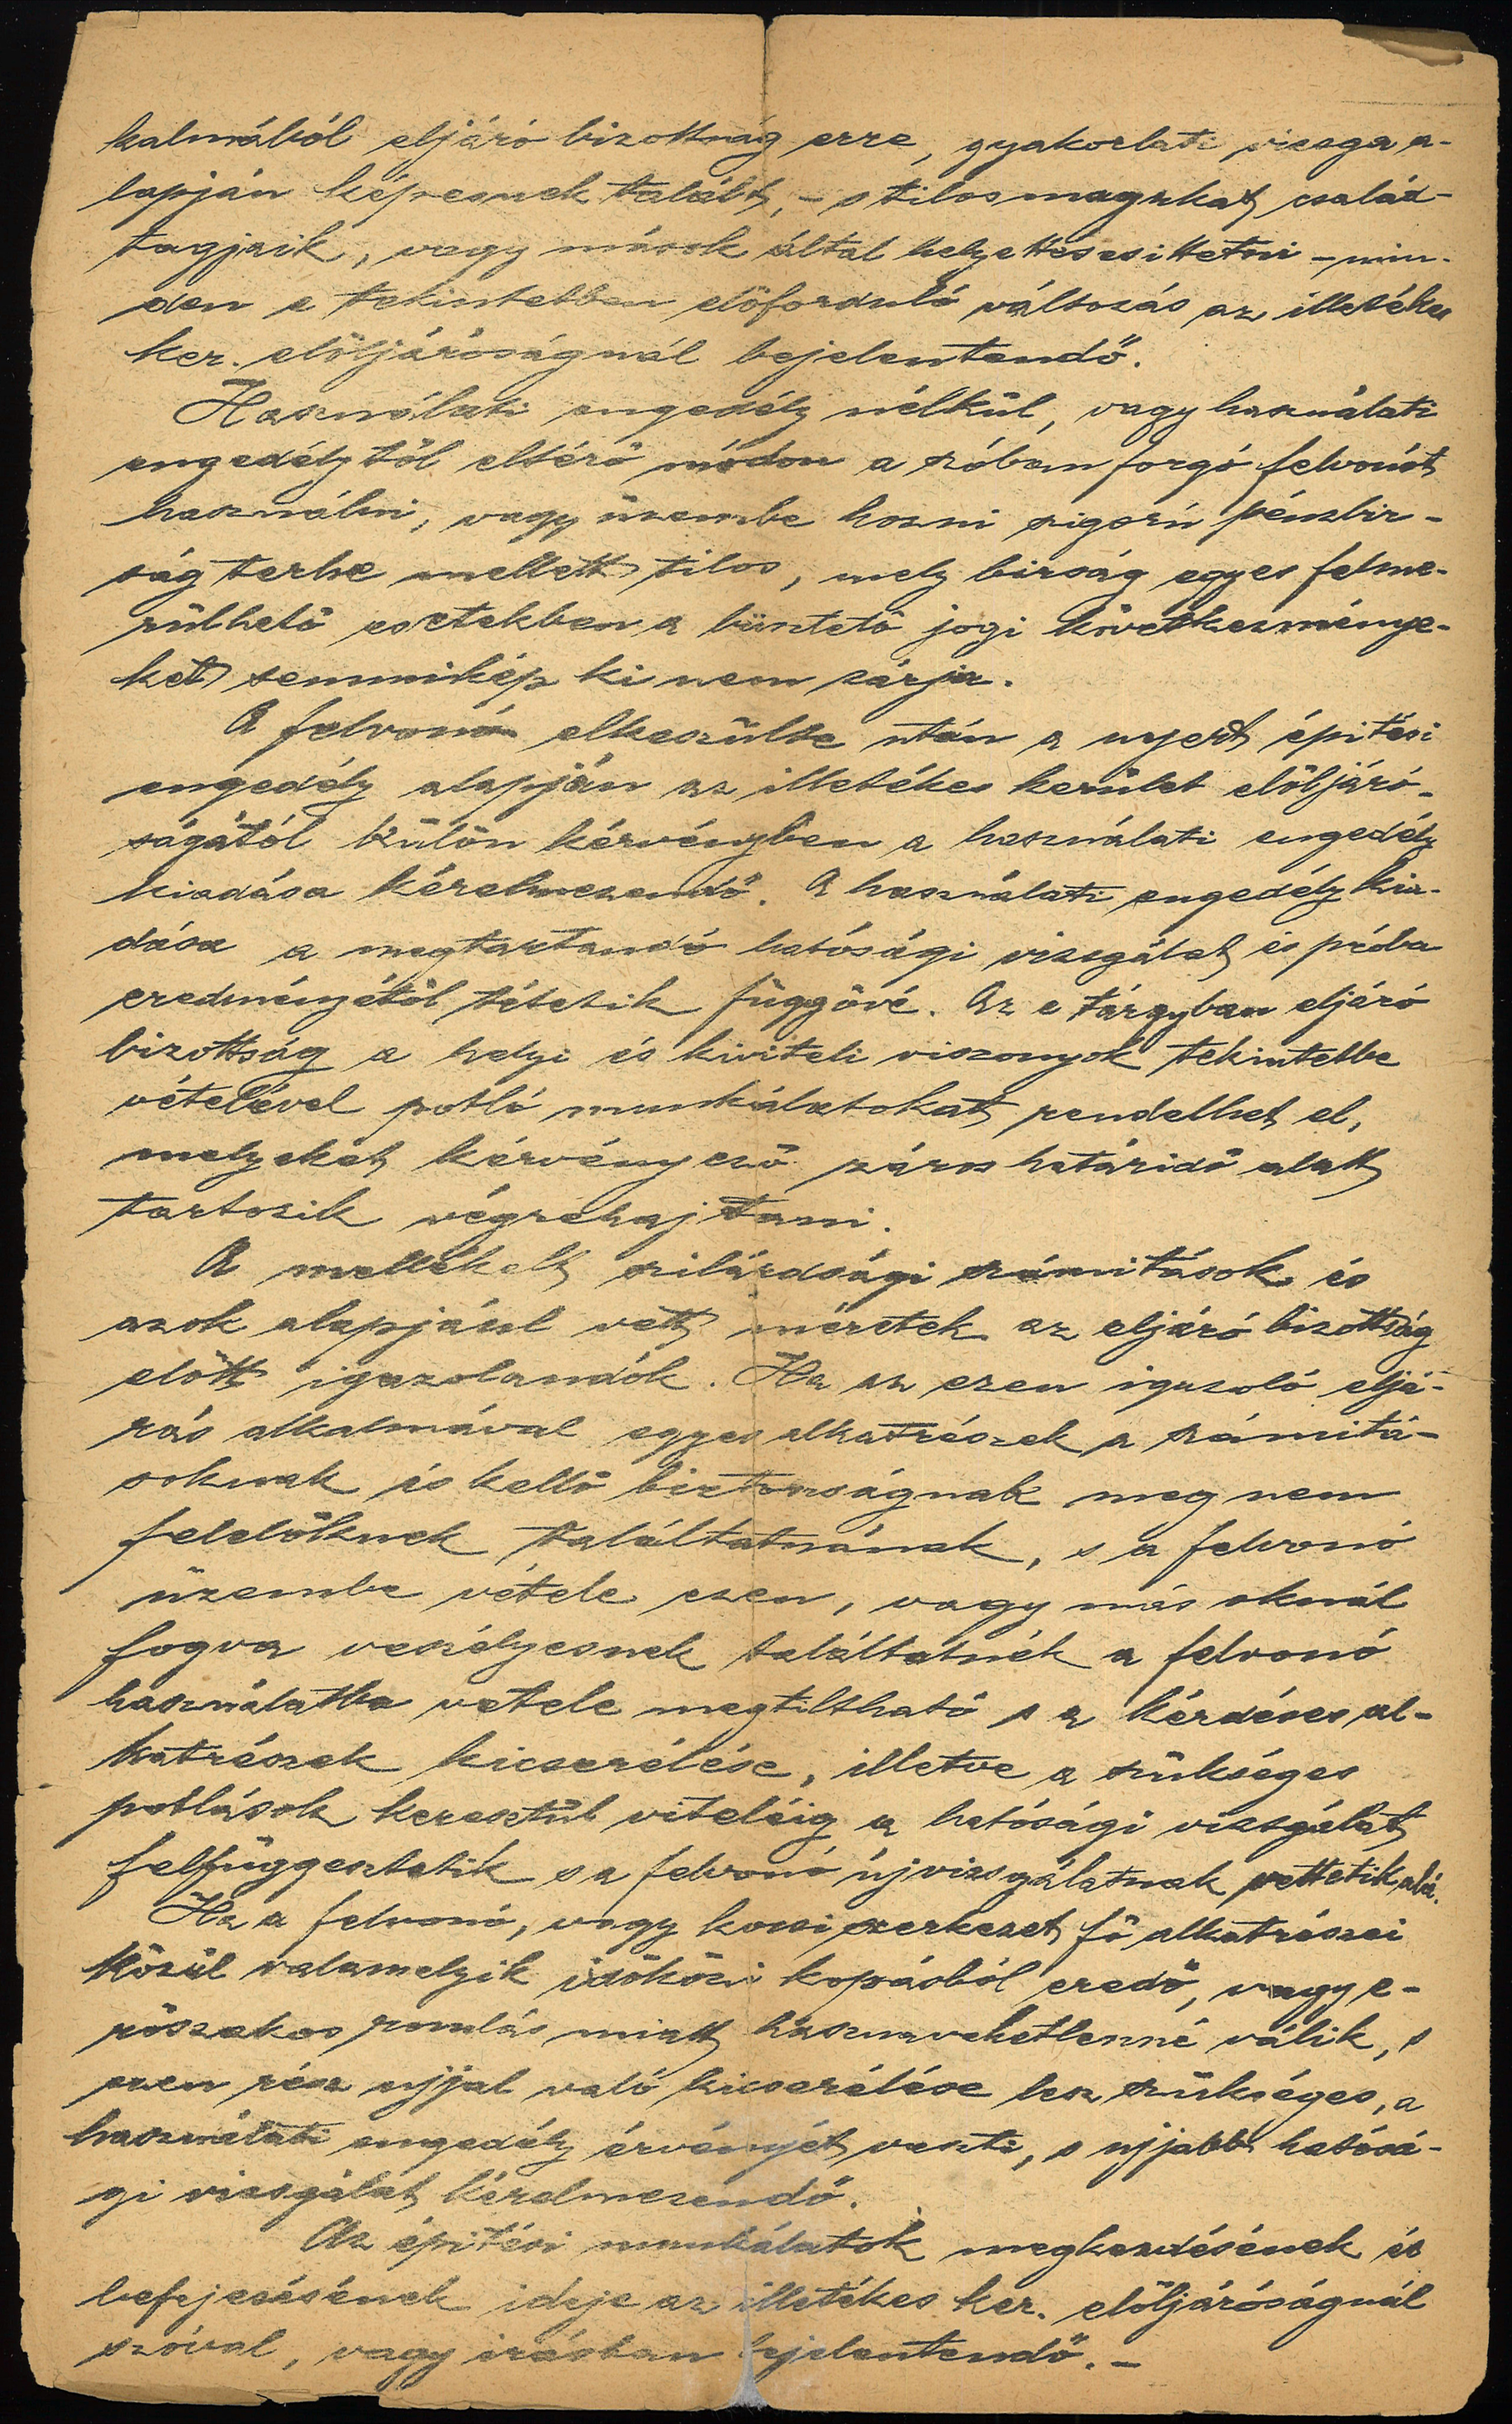 kalmából eljáró bizottság erre, gyakorlati vizsga a-
lapján képesnek talált, – s tilos magukat család-
tagjaik, vagy mások által helyettesesittetni – min-
den e tekintetben előforduló változás az illetékes
ker. elöljáróságnál bejelentendő.
Használati engedély nélkül, vagy használati
engedélytől eltérő módon a szóban forgó felvonót
használni, vagy üzembe hozni szigorú pénzbir-
ság terhe mellett tilos, mely birság egyes felme-
rülhető esetekben a büntető jogi következménye-
ket semmikép ki nem zárja.
A felvonó elkeszülte után a nyert épitési
engedély alapján az illetékes kerület elöljáró-
ságától külön kérvényben a használati engedély
kiadása kérelmezendő. A használati engedély kia-
dása a megtartandó hatósági vizsgálat és próba
eredményétől tétetik függővé. Az e tárgyban eljáró
bizottság a helyi és kiviteli viszonyok tekintetbe
vételével potló munkálatokat rendelhet el,
melyeket kérvényező záros határidő alatt
tartozik végrehajtani.
A mellékelt szilárdsági számitások és
azok alapjául vett méretek az eljáró bizottság
előtt igazolandók. Ha az ezen igazoló eljá-
rás alkalmával egyes alkatrészek a számitá-
soknak és kellő biztonságnak meg nem
felelőknek találtatnának, s a felvonó
üzembe vétele ezen, vagy más oknál
fogva veszélyesnek találtatnék a felvonó
használatba vetele megtiltható s a kérdéses al-
katrészek kicserélése, illetve a szükséges
potlások keresztül viteléig a hatósági vizsgálat
felfüggesztetik s a felvonó új vizsgálatnak vettetik alá.
Ha a felvonó, vagy kocsi szerkezet fő alkatrészei
közül valamelyik időközi kopásból eredő, vagy e-
rőszakos romlás miatt hasznavehetlenné válik, s
ezen rész ujjal való kicserélése lesz szükséges, a
használati engedély érvényét veszti, s ujjabb hatósá-
gi vizsgálat kérelmezendő.
Az épitési munkálatok megkezdésének és
befejezésének ideje az illetékes ker. elöljáróságnál
szóval, vagy irásban bejelentendő. –